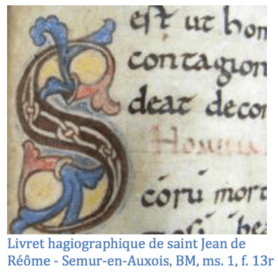 est ut hom
contagion
deat decor
Homelia
S
coru mort
Livret hagiographique de saint Jean de
Réôme - Semur-en-Auxois, BM, ms. 1, f. 13r